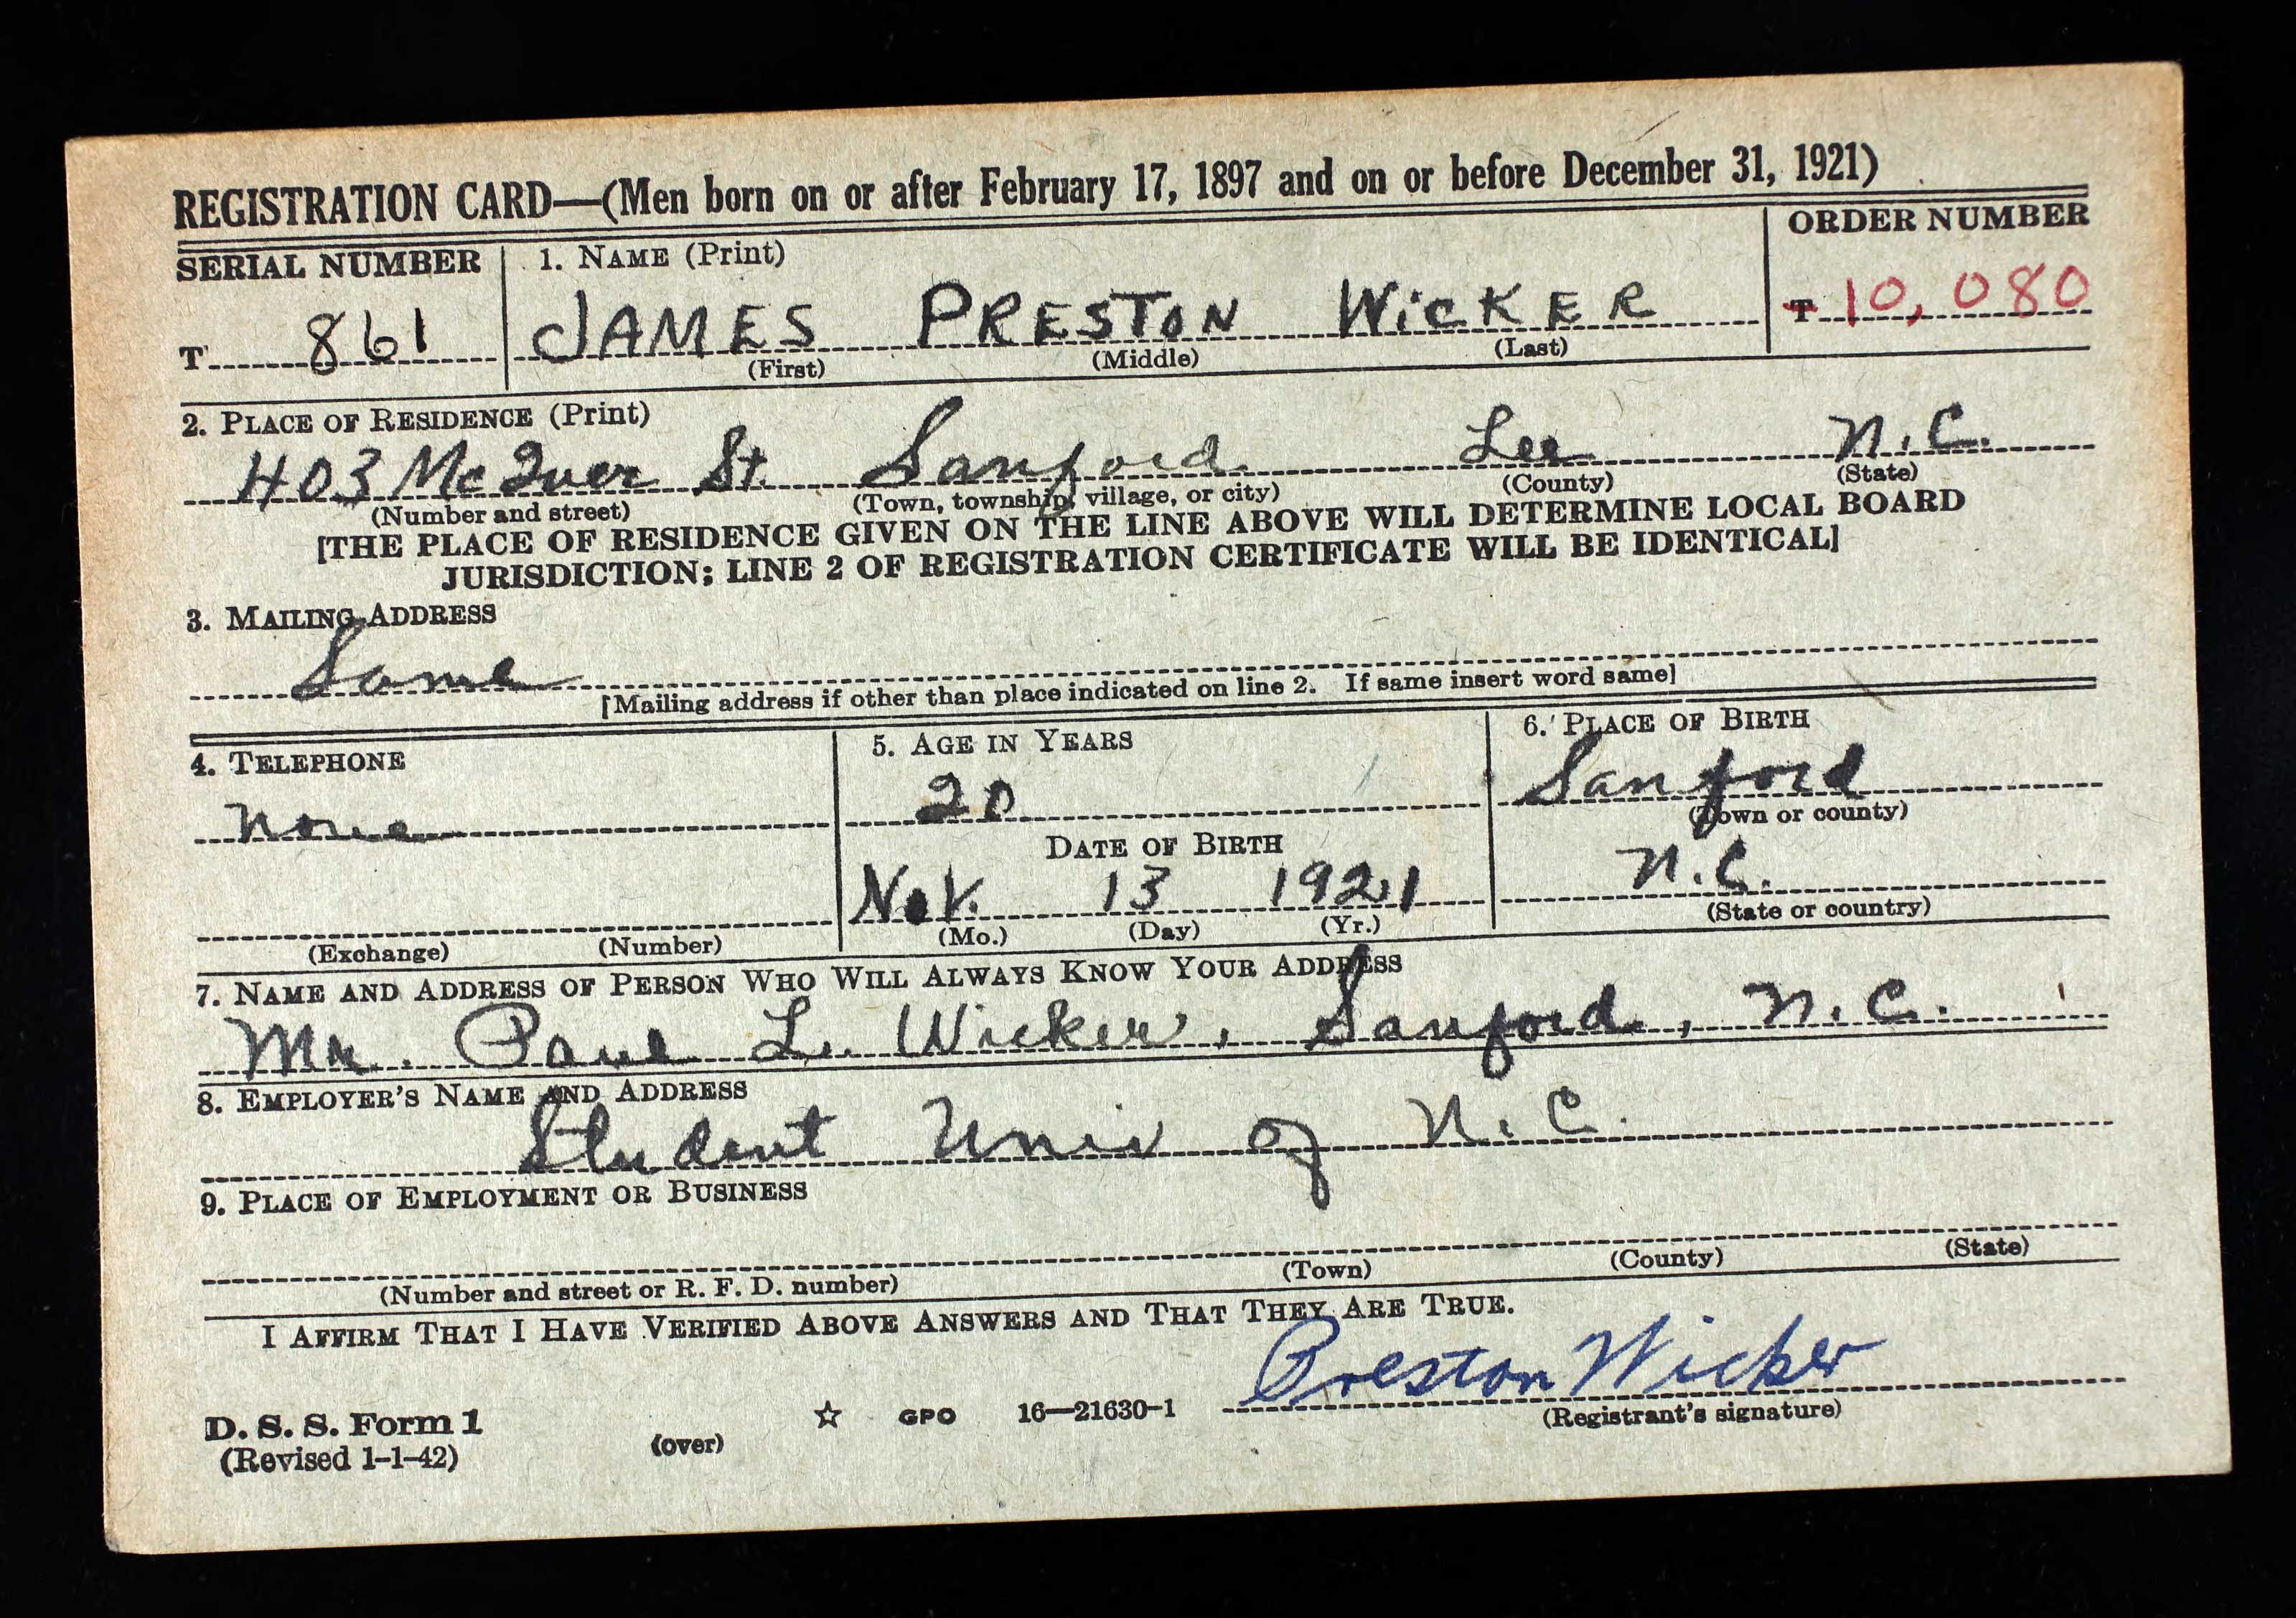 REGISTRATION CARD—(Men born on or after February 17, 1897 and on or before December 31, 1921)
SERIAL NUMBER
1. NAME (Print)
ORDER NUMBER
T 861
JAMES PRESTON WICKER
T 10,080
(First) (Middle) (Last)
2. PLACE OF RESIDENCE (Print)
403 McIver St. Sanford Lee N.C.
(Number and street) (Town, township, village, or city) (County) (State)
[THE PLACE OF RESIDENCE GIVEN ON THE LINE ABOVE WILL DETERMINE LOCAL BOARD
JURISDICTION; LINE 2 OF REGISTRATION CERTIFICATE WILL BE IDENTICAL]
3. MAILING ADDRESS
Same
[Mailing address if other than place indicated on line 2. If same insert word same]
4. TELEPHONE
None
(Exchange) (Number)
5. AGE IN YEARS
20
DATE OF BIRTH
Nov. 13 1921
(Mo.) (Day) (Yr.)
6. PLACE OF BIRTH
Sanford
(Town or county)
N.C.
(State or country)
7. NAME AND ADDRESS OF PERSON WHO WILL ALWAYS KNOW YOUR ADDRESS
Mr. Paul L. Wicker, Sanford, N.C.
8. EMPLOYER'S NAME AND ADDRESS
Student Univ of N.C.
9. PLACE OF EMPLOYMENT OR BUSINESS
(Number and street or R. F. D. number) (Town) (County) (State)
I AFFIRM THAT I HAVE VERIFIED ABOVE ANSWERS AND THAT THEY ARE TRUE.
Preston Wicker
(Registrant's signature)
D. S. S. Form 1
(Revised 1-1-42)
(over)
☆ GPO 16—21630-1